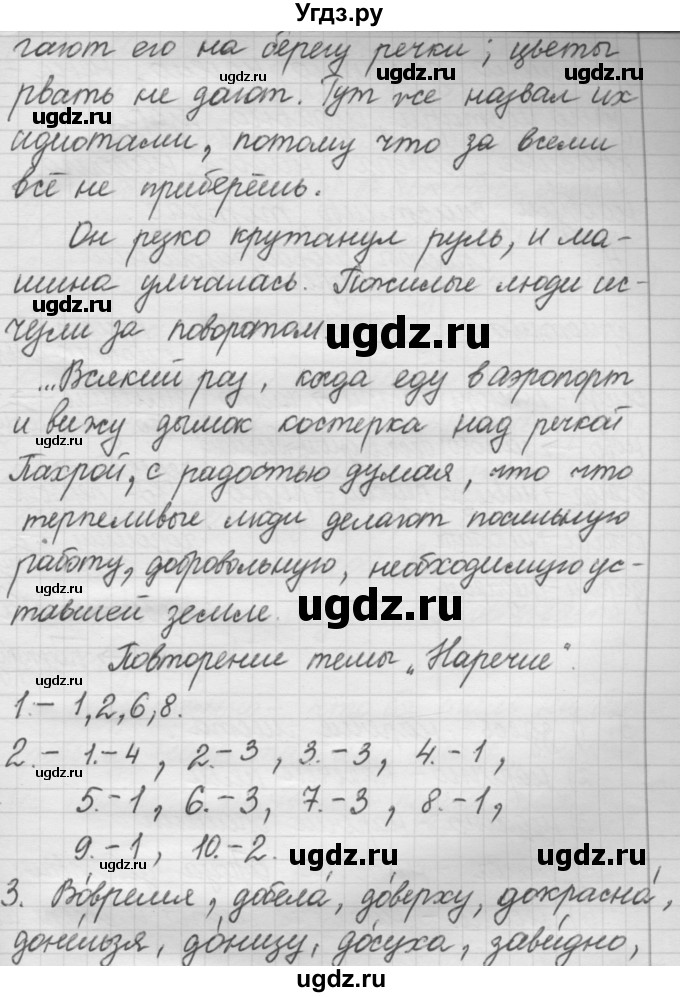 Угдз.ру
гают его на берегу речки; цветы
рвать не дают. Тут же назвал их
идиотами, потому что за всеми
всё не приберёшь.
Он резко крутанул руль, и ма-
шина умчалась. Пожилые люди ис-
чезли за поворотом
...Всякий раз, когда еду в аэропорт
и вижу дымок костерка над речкой
Пахрой, с радостью думая, что что
терпеливые люди делают посильную
работу, добровольную, необходимую ус-
тавшей земле.
Повторение темы „Наречие".
1.- 1,2,6,8.
2.- 1.-4, 2.-3, 3.-3, 4.-1,
5.-1, 6.-3, 7.-3, 8.-1,
9.-1, 10.-2.
3. Во́время, добела́, до́верху, докрасна́,
доне́льзя, до́низу, до́суха, зави́дно,
ugdz.ru